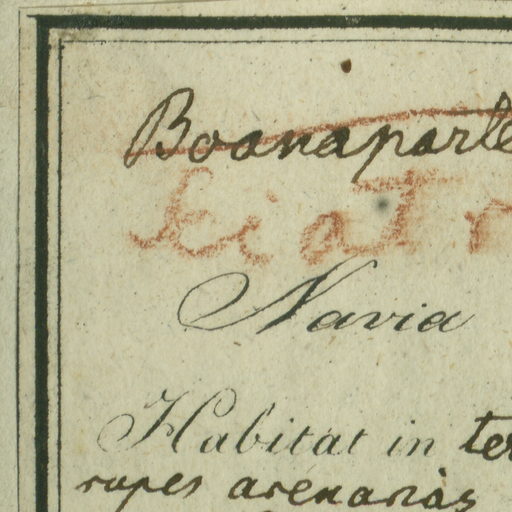 Boanaparte
Navia
Habitat in ter
rupes arenarias